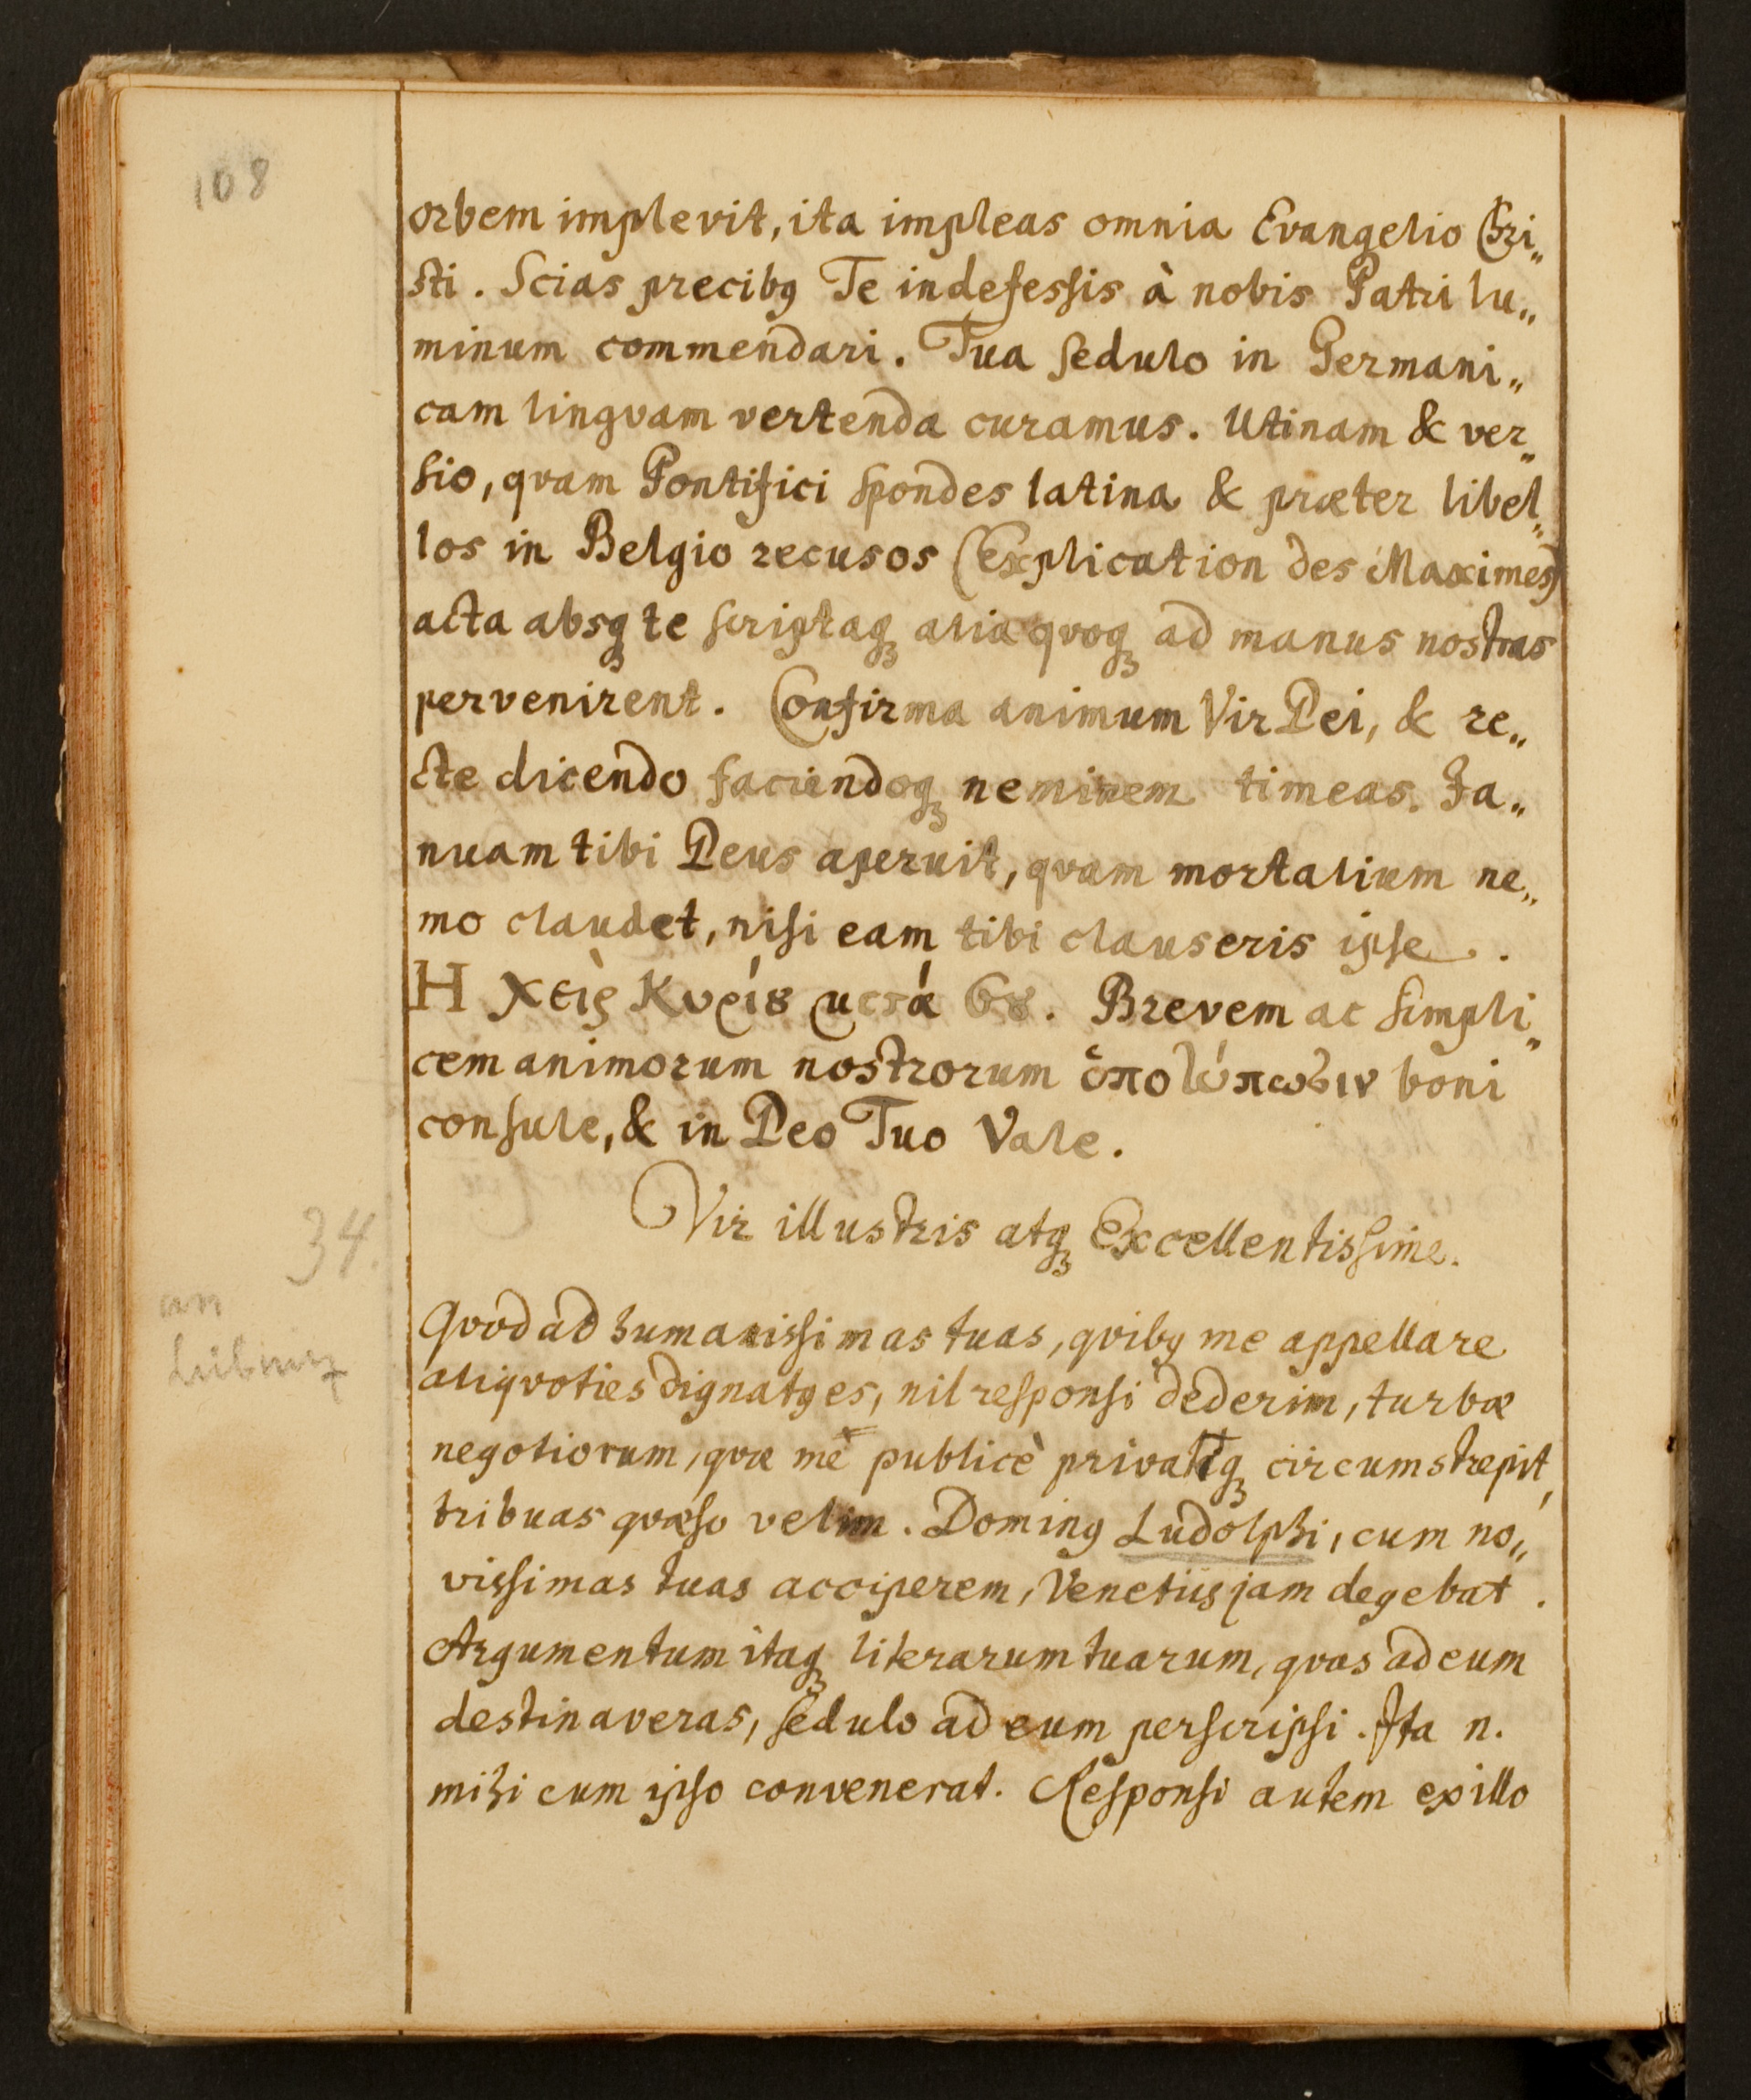 108
orbem implevit, ita impleas omnia Evangelio Chri„
sti. Scias precibꝰ Te indefessis à nobis Patri lu„
minum commendari. Tua sedulo in Germani„
cam lingvam vertenda curamus. Utinam & ver„
sio, qvam Pontifici spondes latina & præter libel„
los in Belgio recusos (Explication des Maximes)
acta absqꝫ te scriptaqꝫ alia qvoqꝫ ad manus nostras
pervenirent. Confirma animum Vir Dei, & re„
cte dicendo faciendoqꝫ neminem timeas. Ja„
nuam tibi Deus aperuit, qvam mortalium ne„
mo claudet, nisi eam tibi clauseris ipse.
Η χεὶρ Κυρίȣ μετά σȣ. Brevem ac simpli„
cem animorum nostrorum boni
consule, & in Deo Tuo Vale.
34.
Vir illustris atqꝫ Excellentissime.
an
Leibniz
Qvod ad humanissimas tuas, qvibꝰ me appellare
aliqvoties dignatꝰ es, nil responsi dederim, turbæ
negotiorum, qvæ me publicè privatiqꝫ circumstrepit,
tribuas qvæso velim. Dominꝰ Ludolphi, cum no„
vissimas tuas acciperem, Venetiis jam degebat.
Argumentum itaqꝫ literarum tuarum, qvas ad eum
destinaveras, sedulo ad eum perscripsi. Ita n.
mihi cum ipso convenerat. Responsi autem ex illo